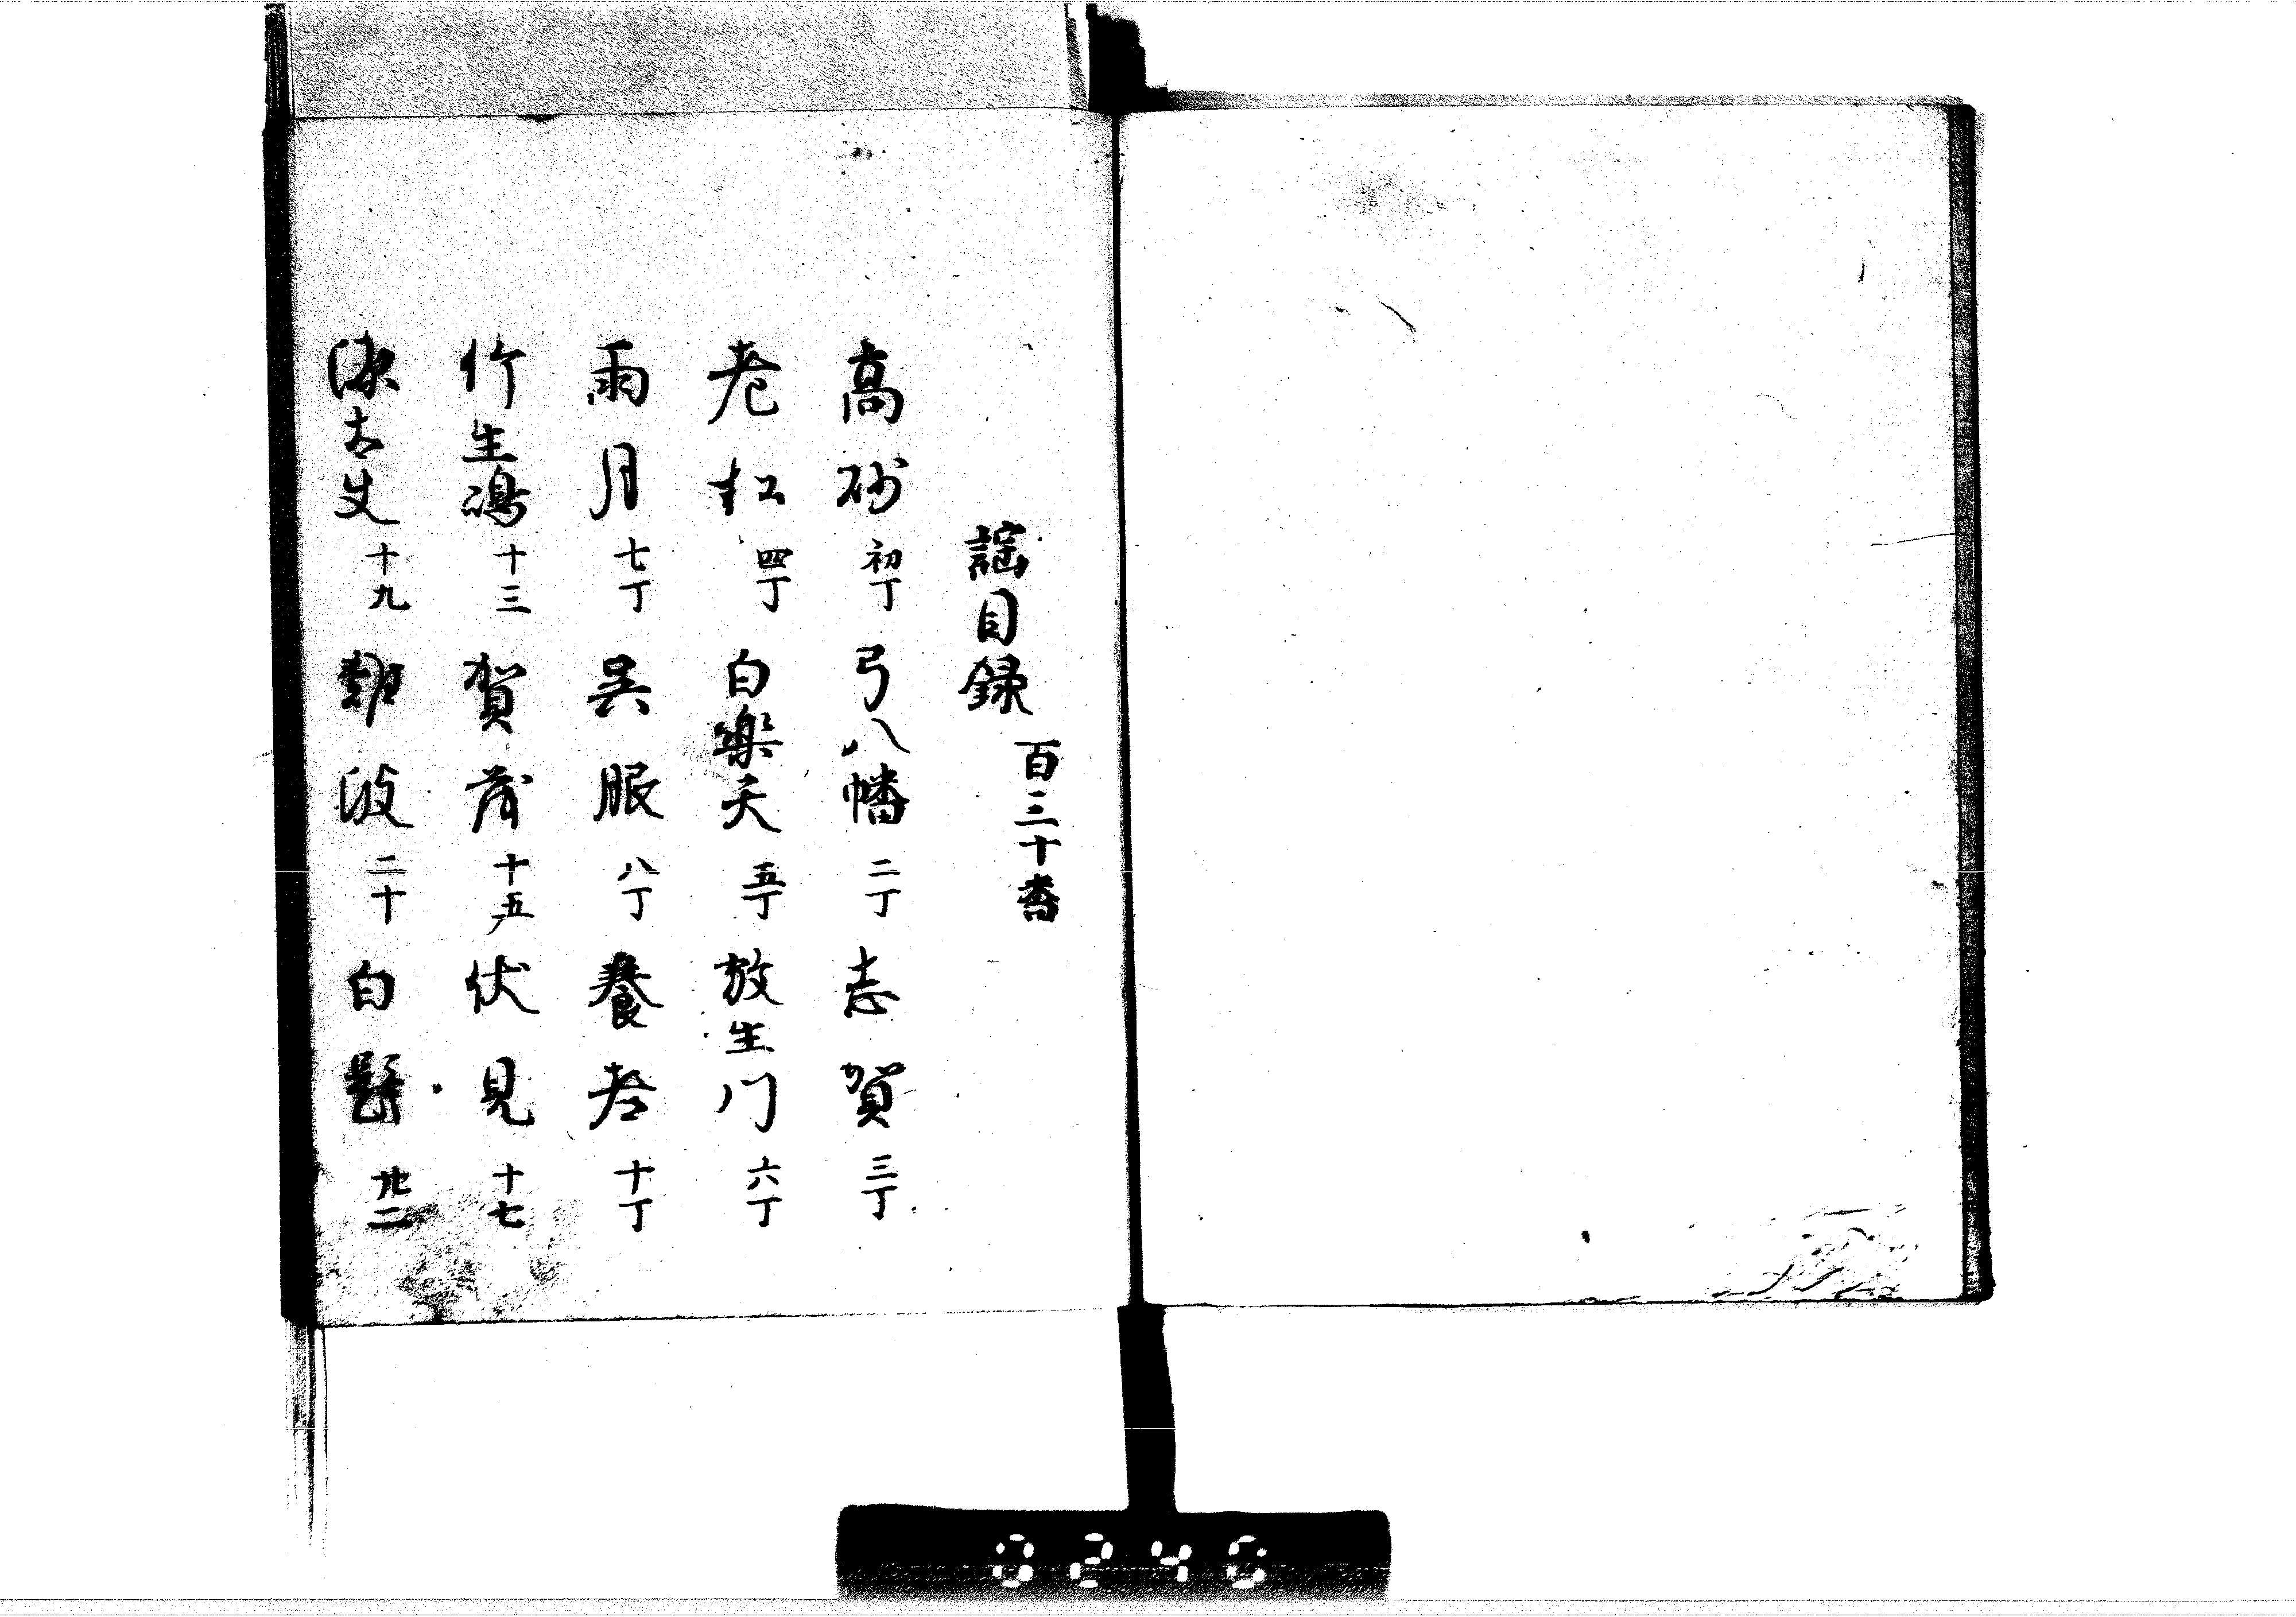 謡目録 百三十番
高砂 初丁 弓八幡 二丁 志賀 三丁
老松 四丁 白楽天 五丁 放生川 六丁
雨月 七丁 呉服 八丁 養老 十丁
竹生嶋 十三 賀茂 十五 伏見 十七
源太夫 十九 難波 二十 白髭 廿二